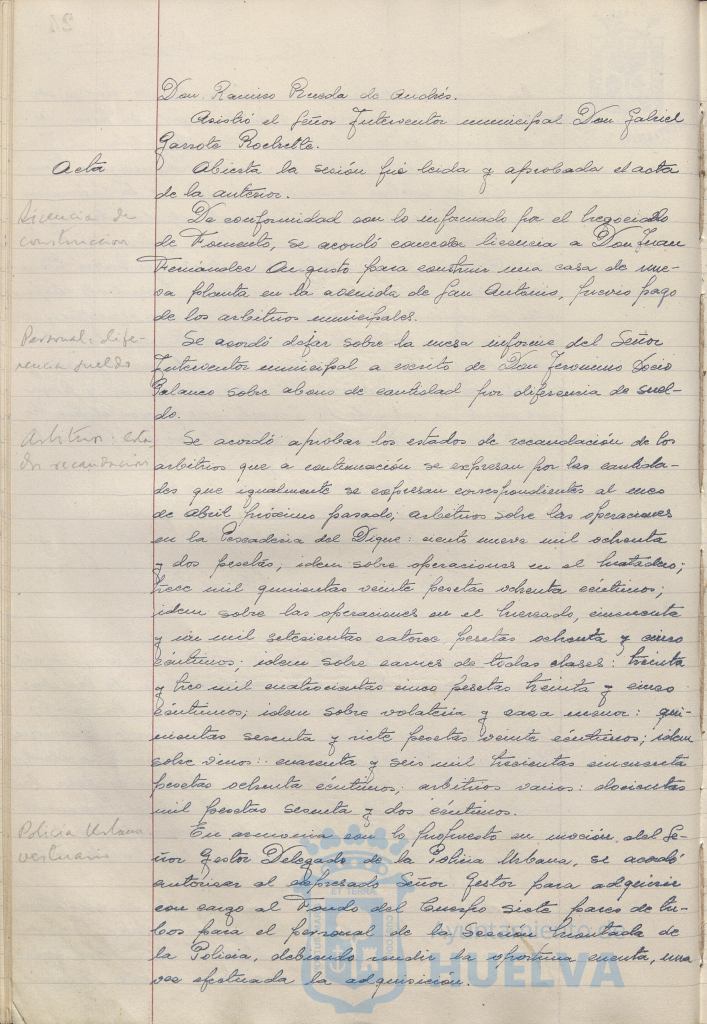 Don Ramiro Rueda de Andrés.
Asistió el Señor Interventor municipal Don Gabriel
Garrote Rochette.
Acta
Abierta la sesión fué leida y aprobada el acta
de la anterior.
Licencia de
construccion
De conformidad con lo informado por el Negociado
de Fomento, se acordó conceder licencia a Don Juan
Fernández Angusto para construir una casa de nue-
va planta en la avenida de San Antonio, previo pago
de los arbitrios municipales.
Personal: dife-
rencia sueldo
Se acordó dejar sobre la mesa informe del Señor
Interventor municipal a escrito de Don Jeronimo
Palanco sobre abono de cantidad por diferencia de suel-
do.
Arbitrios: esta-
dos recaudacion
Se acordó aprobar los estados de recaudación de los
arbitrios que a continuación se expresan por las cantida-
des que igualmente se expresan correspondientes al mes
de Abril próximo pasado; arbitrios sobre las operaciones
en la Pescaderia del Dique: ciento nueve mil ochenta
y dos pesetas, idem sobre operaciones en el Matadero;
trece mil quinientas veinte pesetas ochenta céntimos;
idem sobre las operaciones en el Mercado, cincuenta
y un mil setecientas catorce pesetas ochenta y cinco
céntimos; idem sobre carnes de todas clases: treinta
y tres mil cuatrocientas cinco pesetas treinta y cinco
céntimos; idem sobre volateria y caza menor: qui-
nientas sesenta y siete pesetas veinte céntimos; idem
sobre vinos: cuarenta y seis mil trecientas cincuenta
pesetas ochenta céntimos; arbitrios varios: docientas
mil pesetas sesenta y dos céntimos.
Policia Urbana
vestuario
En armonia con lo propuesto en moción del Se-
ñor Gestor Delegado de la Policia Urbana, se acordó
autorizar al expresado Señor Gestor para adquirir
con cargo al Fondo del Cuerpo siete pares de tu-
bos para el personal de la Sección Montada de
la Policia, debiendo rendir la oportuna cuenta, una
vez efectuada la adquisición.
Ayuntamiento de
HUELVA